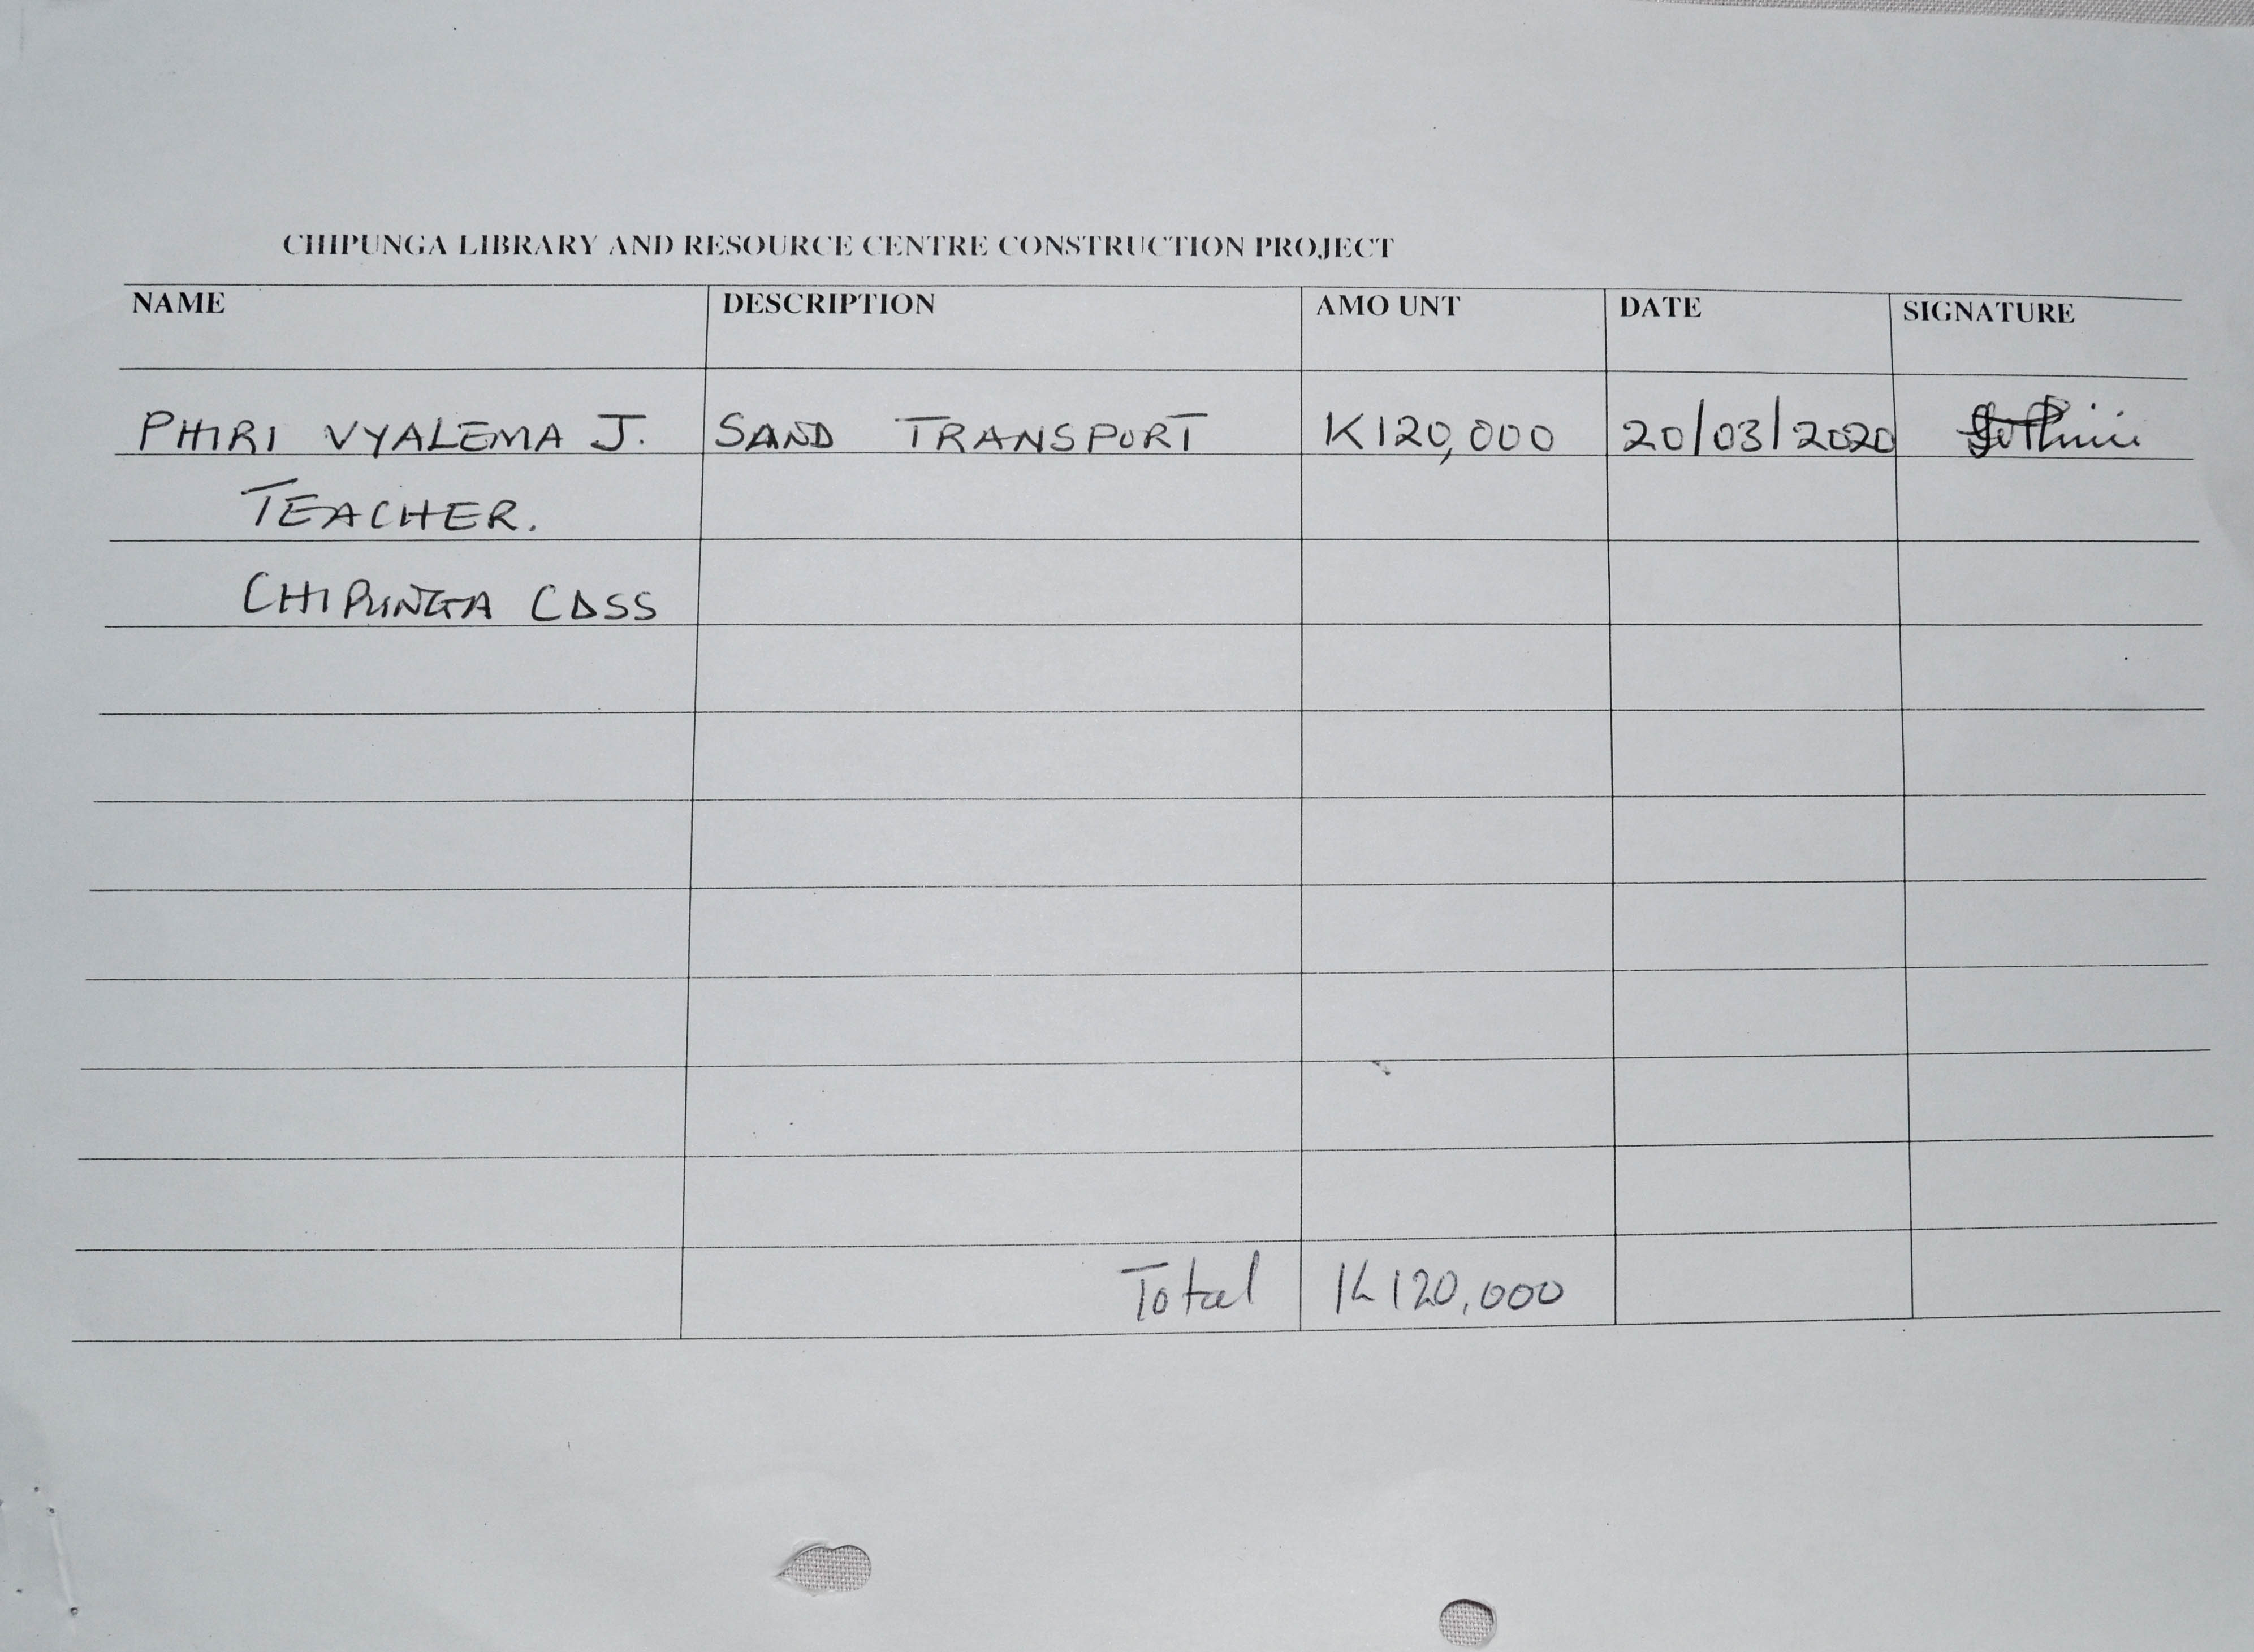 CHIPUNGA LIBRARY AND RESOURCE CENTRE CONSTRUCTION PROJECT
NAME DESCRIPTION AMO UNT DATE SIGNATURE
PHIRI VYALEMA J. SAND TRANSPORT K120,000 20/03/2020
TEACHER.
CHIPUNGA CDSS
Total K120,000